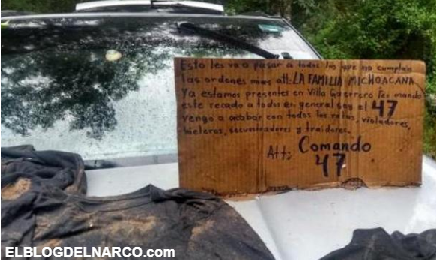 Esto les va a pasar a todos los que no cumplan
las ordenes muy att: LA FAMILIA MICHOACANA
ya estamos presentes en Villa Guerrero les mando
este recado a todos en general soy el 47
vengo a acabar con todas las ratas, violadores,
secuestradores y traidores.
Att: Comando
47
ELBLOGDELNARCO.com